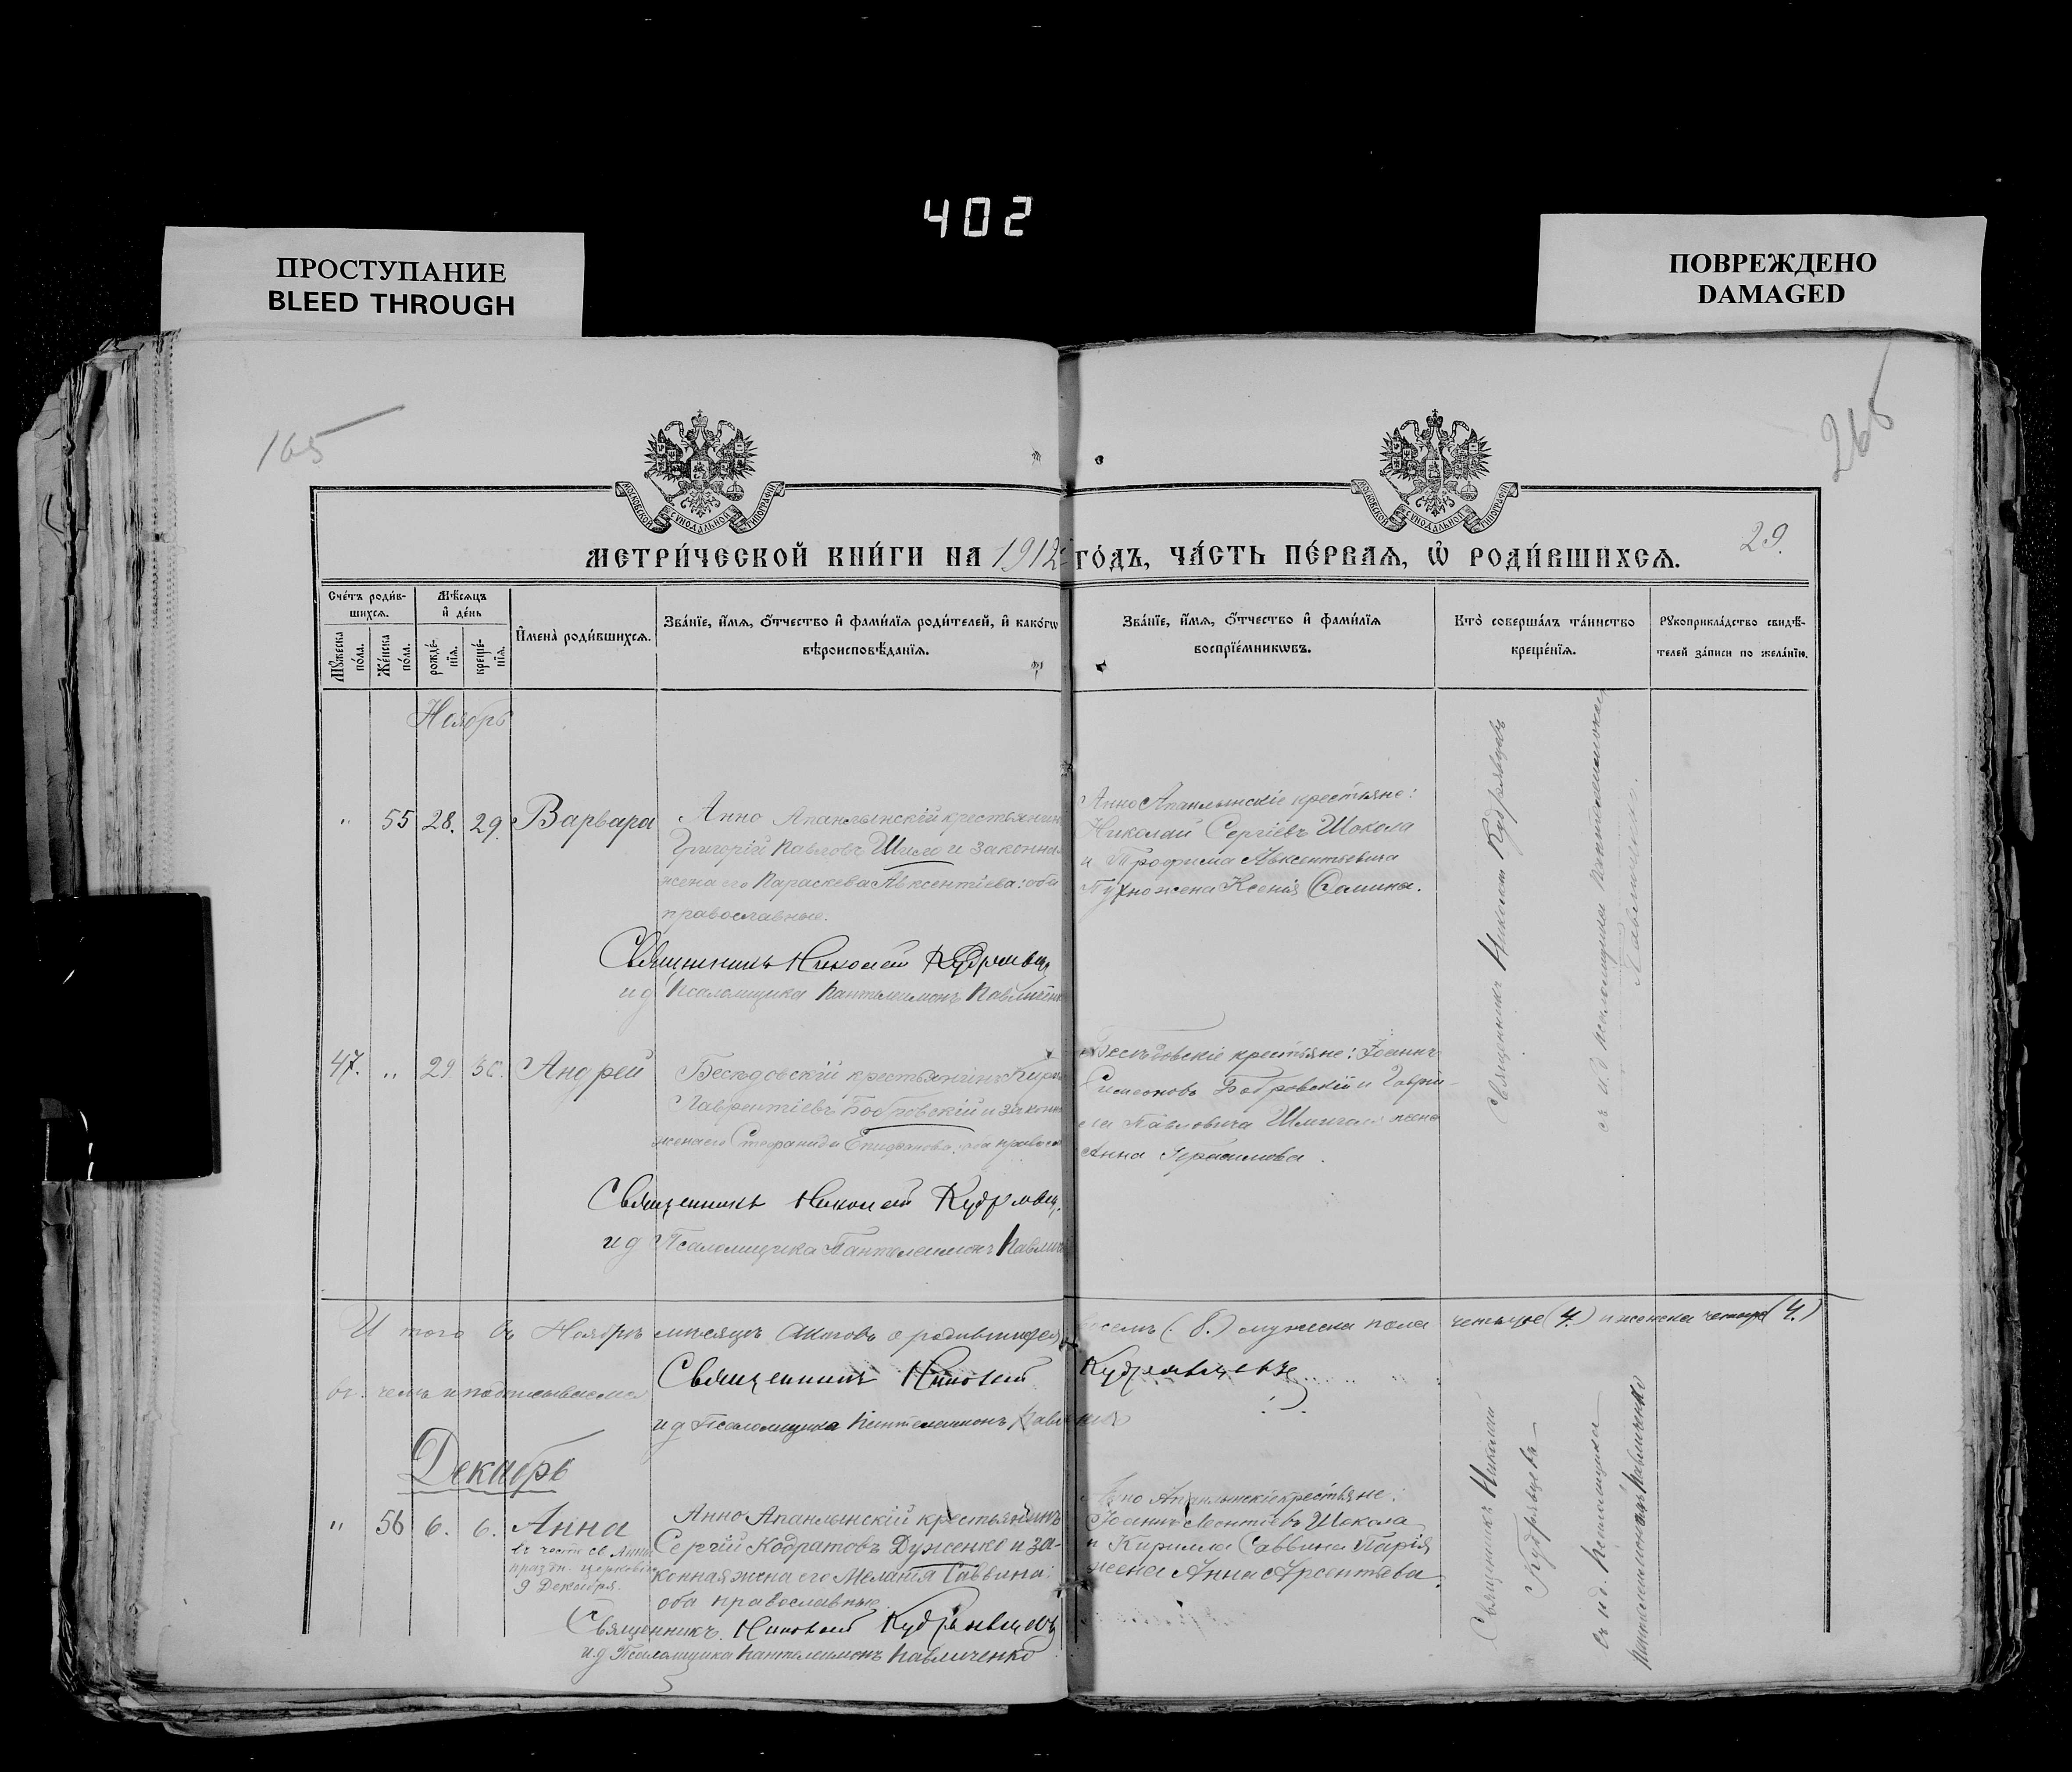 402
ПРОСТУПАНИЕ
BLEED THROUGH
ПОВРЕЖДЕНО
DAMAGED
165
265
29.
МОСКОВСКОЙ СѴНОДАЛЬНОЙ ТИПОГРАФІИ
МОСКОВСКОЙ СѴНОДАЛЬНОЙ ТИПОГРАФІИ
МЕТРИ́ЧЕСКОЙ КНИ́ГИ НА 1912 ГО́ДЪ, ЧА́СТЬ ПЕ́РВАѦ, Ѡ҆ РОДИ́ВШИХСѦ.
Сче́тъ роди́в-
шихсѧ.
Мꙋ́жеска
по́ла.
Же́нска
по́ла.
Мѣ́сѧцъ
и҆ де́нь
рожде́-
нїѧ.
креще́-
нїѧ.
И҆мена̀ роди́вшихсѧ.
Зва́нїе, и҆́мѧ, ѻ҆́тчество и҆ фами́лїѧ роди́телей, и҆ како́гѡ
вѣроисповѣ́данїѧ.
Зва́нїе, и҆́мѧ, ѻ҆́тчество и҆ фами́лїѧ
воспрїе́мникѡвъ.
Кто̀ соверша́лъ та́инство
креще́нїѧ.
Рꙋкоприкла́дство свидѣ́-
телей за́писи по жела́нїю.
Ноябрь
" 55 28. 29. Варвара
Анно Апанлынскій крестьянин
Григорій Павловъ Шило и законна
жена его Параскева Авксентіева: оба
православные.
Священникъ Николай Кудрявц
и д Псаломщика Пантелеимонъ Павличенк
Анно Апанлынскіе крестьяне:
Николай Сергіевъ Шокола
и Трофима Авксентьевича
жена Ксенія
Священникъ Николай Кудрявцевъ
съ и. д псаломщика Пантелеимоном
Павличенко.
47. " 29 30. Андрей
Бесѣдовскій крестьянинъ Кир
Лаврентіевъ Бобровскій и законн
жена его Стефанида Епифанова: оба правосл
Священникъ Николай Кудрявц.
и д Псаломщика Пантелеимонъ Павлич
Бесѣдовскіе крестьяне: Іоаннъ
Симеоновъ Бобровскій и Гаврі-
ила Павловича жена
Анна Герасимова.
И того въ Ноябрѣ мѣсяцѣ актовъ о родившихся восемъ (8.) мужеска пола четыре (4.) и женска четыре (4.)
въ чемъ и подписываемся
Священникъ Николай Кудрявцевъ
и д Псаломщика Пантелеимонъ Павличенко
Декабрь
" 56 6. 6. Анна
въ честь св. Анны
праздн. церковію
9 Декабря.
Анно Апанлынскій крестьянинъ
Сергій Кодратовъ Дуженко и за-
конная жена его Меланія Саввина:
оба православные.
Священникъ Николай Кудрявцевъ
и. д Псаломщика Пантелеимонъ Павличенко
Анно Апанлынскіе крестьяне:
Іоаннъ Леонтіевъ Шокола
и Кирилла Саввина Парія
жена Анна Арсентьева.
Священникъ Николай
Кудрявцевъ
съ и.д. Псаломщика
Пантелеимономъ Павличенко